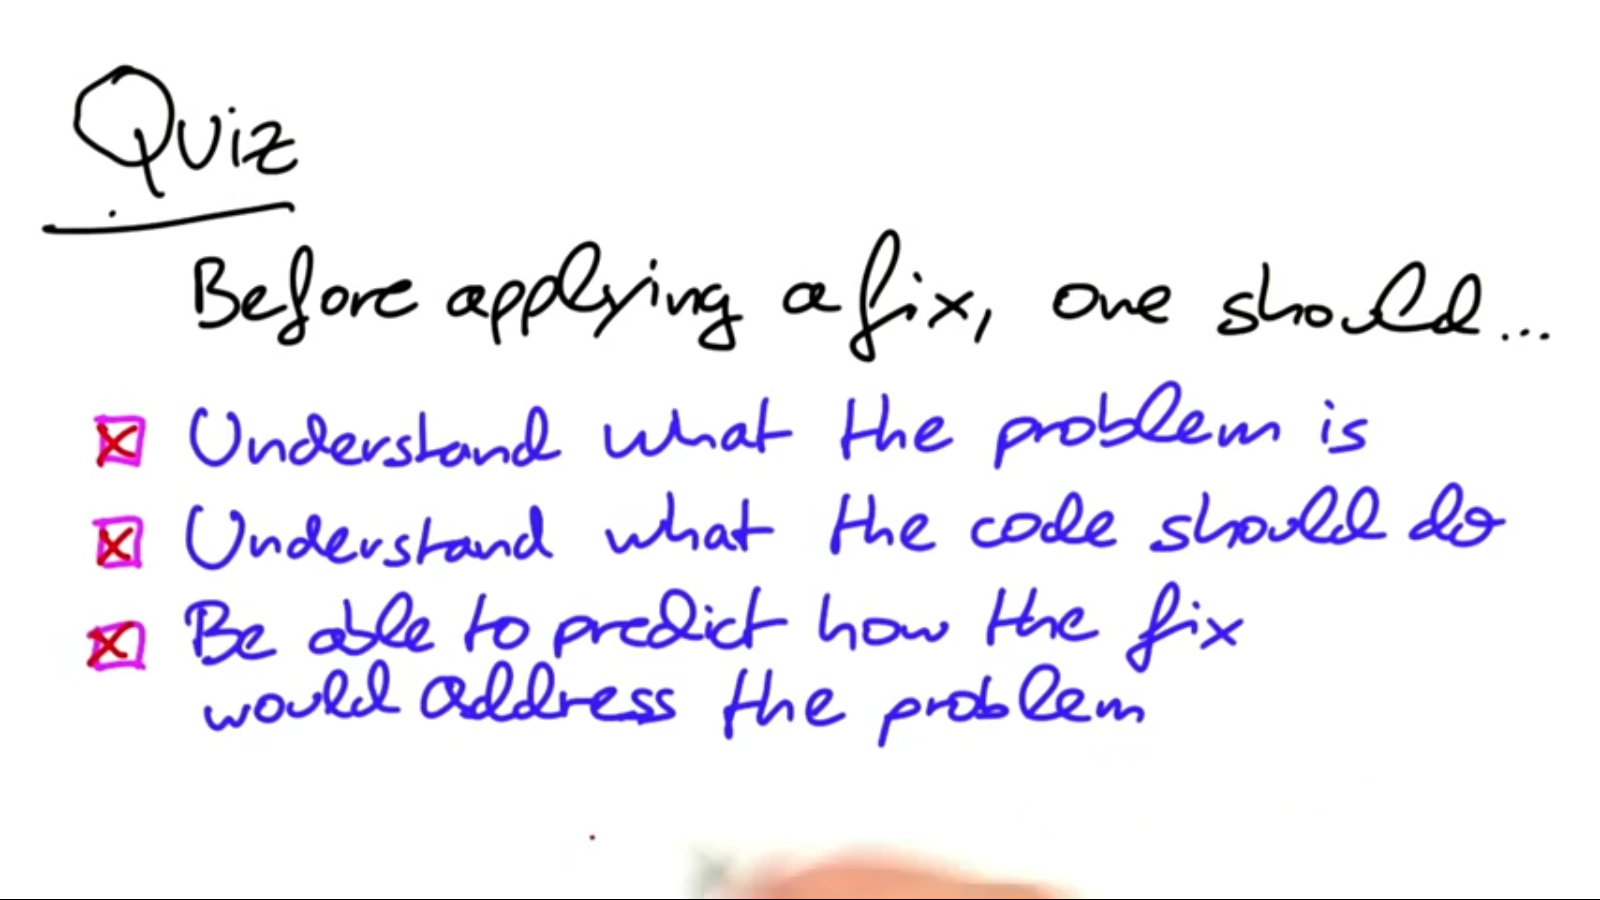 Quiz
Before applying a fix, one should...
Understand what the problem is
Understand what the code should do
Be able to predict how the fix
would address the problem